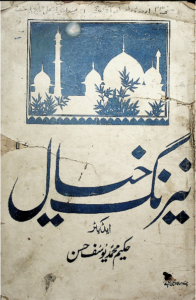 نیرنگ خیال
ایڈیٹر
حکیم محمد یوسف حسن